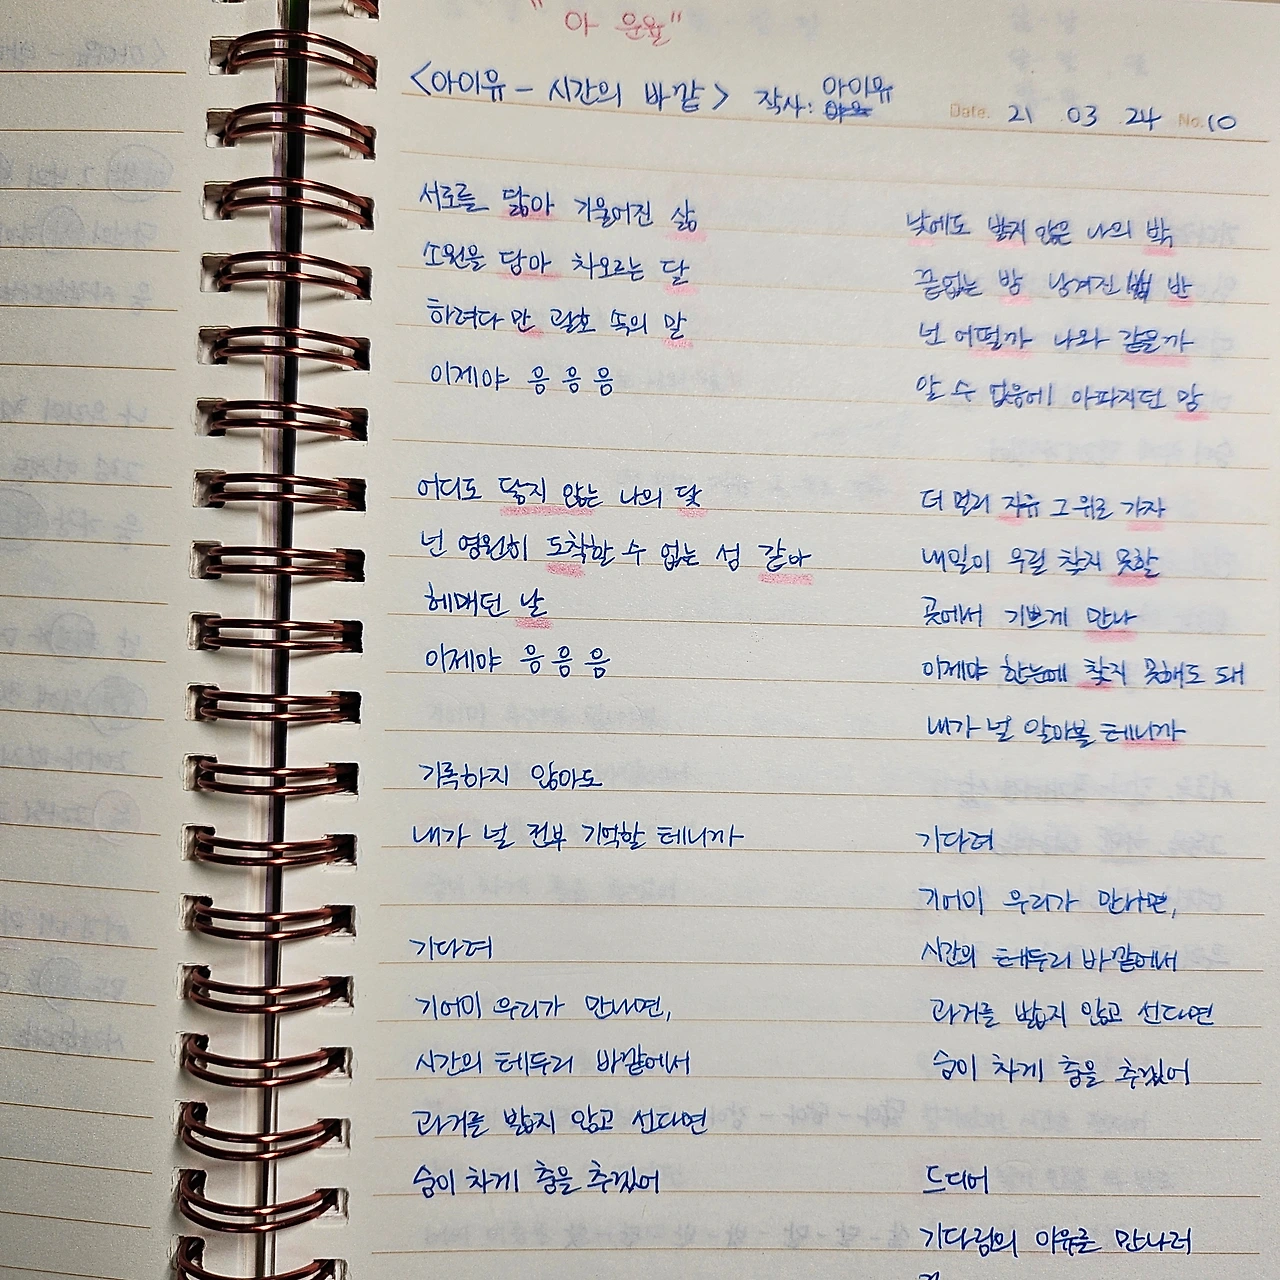 "아 운율"
<아이유 - 시간의 바깥> 작사: 아이유
Date. 21 03 24 No. 10
서로를 닮아 기울어진 삶
소원을 담아 차오르는 달
하려다 만 괄호 속의 말
이제야 음 음 음
어디도 닿지 않는 나의 닻
넌 영원히 도착할 수 없는 섬 같아
헤매던 날
이제야 음 음 음
기록하지 않아도
내가 널 전부 기억할 테니까
기다려
기어이 우리가 만나면,
시간의 테두리 바깥에서
과거를 밟지 않고 선다면
숨이 차게 춤을 추겠어
낮에도 밝지 않은 나의 밖
끝없는 밤 남겨진 반
넌 어떨까 나와 같을까
알 수 없음에 아파지던 맘
더 멀리 자유 그 위로 가자
내일이 우릴 찾지 못할
곳에서 기쁘게 만나
이제야 한눈에 찾지 못해도 돼
내가 널 알아볼 테니까
기다려
기어이 우리가 만나면,
시간의 테두리 바깥에서
과거를 밟지 않고 선다면
숨이 차게 춤을 추겠어
드디어
기다림의 이유를 만나러